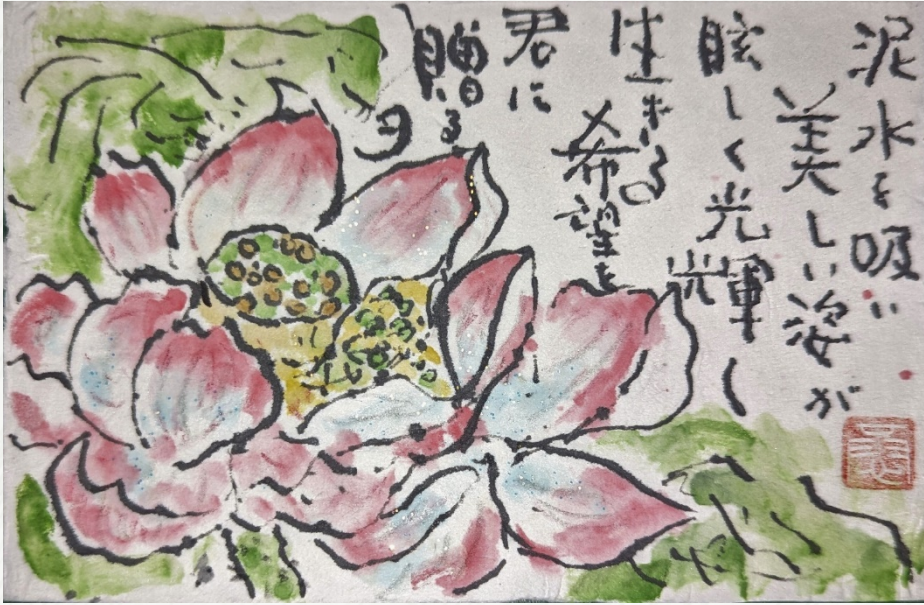 泥水を吸い
美しい姿が
眩しく光輝く
生きる
希望を
君に
贈る
ヨ